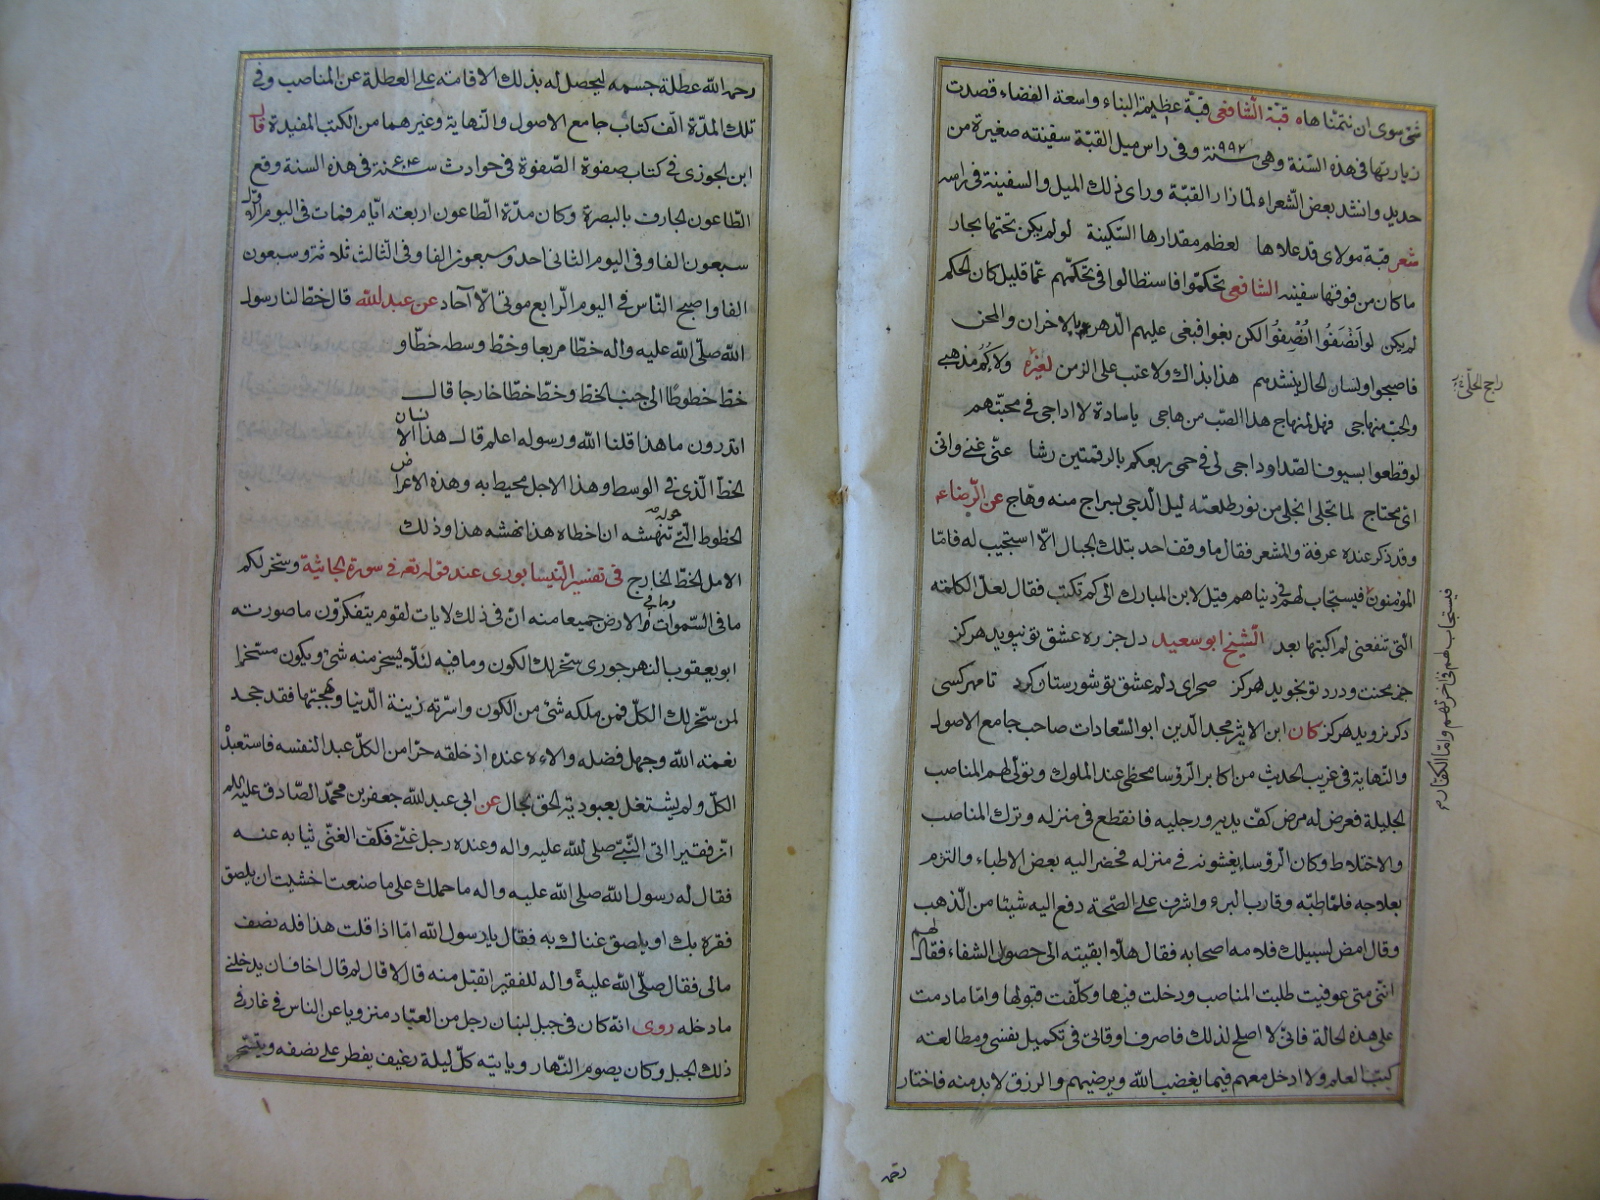 شئ سوى ان نتمناها قبّة الشّافعى قبّة عظيمة البناء واسعة الفضاء قصدت
زيارتها فى هذه السّنة وهى سنة ٩٩٢ وفى راس ميل القبّة سفينته صغيرة من
حديد وانشد بعض الشّعراء لمّا زار القبّة وراى ذلك الميل والسفينة فى راسه
شعر قبّة مولاى قد علاها لعظم مقدارها السّكينة لو لم يكن تحتها بحار
ما كان من فوقها سفينه الشافعى تحكّموا فاستطالوا فى تحكّمهم عمّا قليل كان الحكم
لم يكن لو انْصَفُوا اُنْصِفُوا لكن بغوا فبغى عليهم الدّهر بالاحزان والمحن
فاصبحوا ولسان الحال ينشدهم هذا بذاك ولا عتب على الزمن لغيره ولاكُم مذهبى
والحبّ منهاجى فهل لمنهاج هذا الصّب من هاجى يا سادة لا اداجى فى محبّتهم
لو قطعوا بسيوف الصّد اوداجى لى فى حمى ربعكم بالرقمتين رشا عنّى غنى وانّى
اىّ محتاج لما تجلى انجلى من نور طلعته ليل الدّجى بسراج منه وهّاج عن الرّضاء
وقد ذكر عنده عرفة والمشعر فقال ما وقف احد بتلك الجبال الّا استجيب له فامّا
المؤمنون فيستجاب لهم فى دنياهم قيل لابن المبارك الى كم تكتب فقال لعلّ الكلمة
الّتى تنفعنى لم اكتبها بعد الشّيخ ابو سعيد دل جز ره عشق تو نپويد هرگز
جز محنت ودرد تو نجويد هرگز صحراى دلم عشق تو شورستان كرد تا مهر كسى
دگر نرويد هرگز كان ابن الاثير مجد الدّين ابو السّعادات صاحب جامع الاصول
والنّهاية فى غريب الحديث من اكابر الرّؤسا محظى عند الملوك وتولّى لهم المناصب
الجليلة فعرض له مرض كفّ يديه ورجليه فانقطع فى منزله وترك المناصب
والاختلاط وكان الرّؤسا يغشونه فى منزله فحضر اليه بعض الاطباء والتزم
بعلاجه فلمّا طبّه وقارب البرء واشرف على الصّحة دفع اليه شيئا من الذّهب
وقال امض لسبيلك فلامه اصحابه فقال هلّا ابقيته الى حصول الشفاء فقال لهم
انّنى متى عوفيت طلبت المناصب ودخلت فيها وكلّفت قبولها وامّا ما دمت
على هذه الحالة فانّى لا اصلح لذلك فاصرف اوقاتى فى تكميل نفسى ومطالعة
كتب العلم ولا ادخل معهم فيما يغضب اللّه ويرضيهم والرزق لا بد منه فاختار
راجح الحلّى
فيستجاب لهم فى اخرتهم وامّا الكفّار
رحمه
رحمه اللّه عطلة جسمه ليحصل له بذلك الاقامة على العطلة عن المناصب وفى
تلك المدّة الّف كتاب جامع الاصول والنّهاية وغيرهما من الكتب المفيدة قال
ابن الجوزى فى كتاب صفوة الصّفوة فى حوادث سنة فى هذه السنة وقع
الطّاعون الجارف بالبصرة وكان مدّة الطّاعون اربعة ايّام فمات فى اليوم الاوّل
سبعون الفا وفى اليوم الثانى احد وسبعون الفا وفى الثالث ثلاثة وسبعون
الفا واصبح النّاس فى اليوم الرّابع موتى الّا آحاد عن عبد اللّه قال خطّ لنا رسول
اللّه صلّى اللّه عليه واله خطّا مربعا وخطّ وسطه خطّا و
خطّ خطوطًا الى جنب الخطّ وخطّ خطّا خارجا قال
اتدرون ما هذا قلنا اللّه ورسوله اعلم قال هذا الانسان
الخطّ الّذى فى الوسط وهذا الاجل محيط به وهذه الاعراض
الخطوط الّتى حوله تنهشه ان اخطاه هذا نهشه هذا وذلك
الامل الخطّ الخارج فى تفسير النّيسابورى عند قوله تعه فى سورة الجاثية وسخّر لكم
ما فى السّموات وما فى الارض جميعا منه انّ فى ذلك لايات لقوم يتفكرّون ما صورته
ابو يعقوب النهرجورى سخّر لك الكون وما فيه لئلّا يسخر منه شئ ويكون مسخّرا
لمن سخّر لك الكلّ فمن ملكه شئ من الكون واسرّته زينة الدّنيا وبهجتها فقد جحد
نعمته اللّه وجهل فضله والاءه عنده اذ خلقه حرّا من الكلّ عبدا لنفسه فاستعبدْ
الكلّ ولم يشتغل بعبوديّة الحق بحال عن ابى عبد اللّه جعفر بن محمّد الصّادق عليه السلم
انّ فقيرا اتى النّبىّ صلى اللّه عليه واله وعنده رجل غنىّ فكفّ الغنّى ثيابه عنه
فقال له رسول اللّه صلى اللّه عليه واله ما حملك على ما صنعت اخشيت ان يلصق
فقره بك او يلصق غناك به فقال يا رسول اللّه امّا اذا قلت هذا فله نصف
مالى فقال صلّى اللّه عليه واله للفقير اتقبل منه قال لا قال لم قال اخاف ان يدخلنى
ما دخله روى انّه كان فى جبل لبنان رجل من العبّاد منزويا عن الناس فى غار فى
ذلك الجبل وكان يصوم النّهار وياتيه كلّ ليلة رغيف يفطر على نصفه ويتسّحر